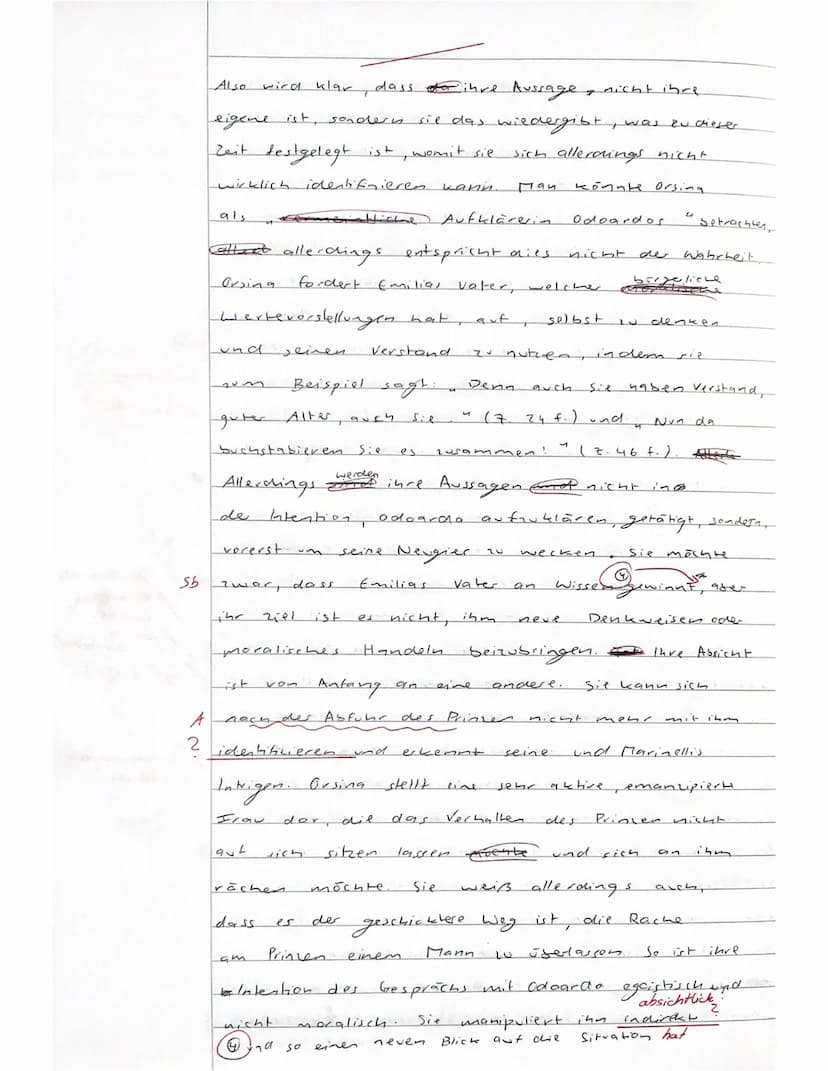 Also wird klar, dass ihre Aussage, nicht ihre
eigene ist, sondern sie das wiedergibt, was zu dieser
Zeit festgelegt ist, womit sie sich allerdings nicht
wirklich identifizieren kann. Man könnte Orsina
als „ Aufklärerin Odoardos " betrachten,
allerdings entspricht dies nicht der Wahrheit.
Orsina fordert Emilias Vater, welcher bürgerliche
Wertevorstellungen hat, auf, selbst zu denken
und seinen Verstand zu nutzen, indem sie
zum Beispiel sagt: „Denn auch Sie haben Verstand,
guter Alter, auch Sie." (Z. 24 f.) und „Nun da
buchstabieren Sie es zusammen!" (Z. 46 f.).
Allerdings werden ihre Aussagen nicht in
der Intention, Odoardo aufzuklären, getätigt, sondern,
vorerst um seine Neugier zu wecken. Sie möchte
Sb zwar, dass Emilias Vater an Wissen gewinnt, (4) aber
ihr Ziel ist es nicht, ihm neue Denkweisen oder
moralisches Handeln beizubringen. Ihre Absicht
ist von Anfang an eine andere. Sie kann sich
A nach der Abfuhr des Prinzen nicht mehr mit ihm
? identifizieren und erkennt seine und Marinellis
Intrigen. Orsina stellt eine sehr aktive, emanzipierte
Frau dar, die das Verhalten des Prinzen nicht
auf sich sitzen lassen und sich an ihm
rächen möchte. Sie weiß allerdings auch,
dass es der geschicktere Weg ist, die Rache
am Prinzen einem Mann zu überlassen. So ist ihre
Intention des Gesprächs mit Odoardo egoistisch und
absichtlich?
nicht moralisch. Sie manipuliert ihn indirekt
(4) und so einen neuen Blick auf die Situation hat